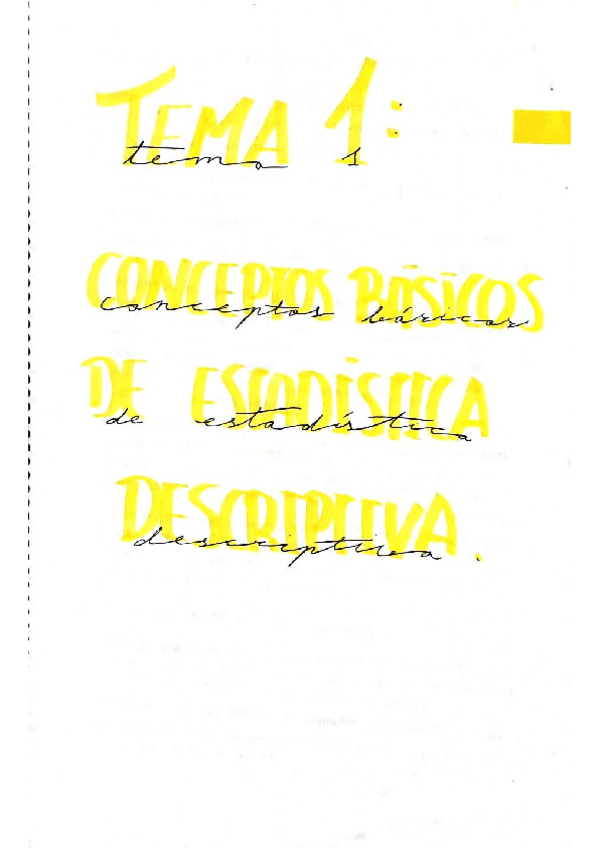 TEMA 1:
tema 1
CONCEPTOS BÁSICOS
conceptos básicos
DE ESTADÍSTICA
de estadística
DESCRIPTIVA.
descriptiva.